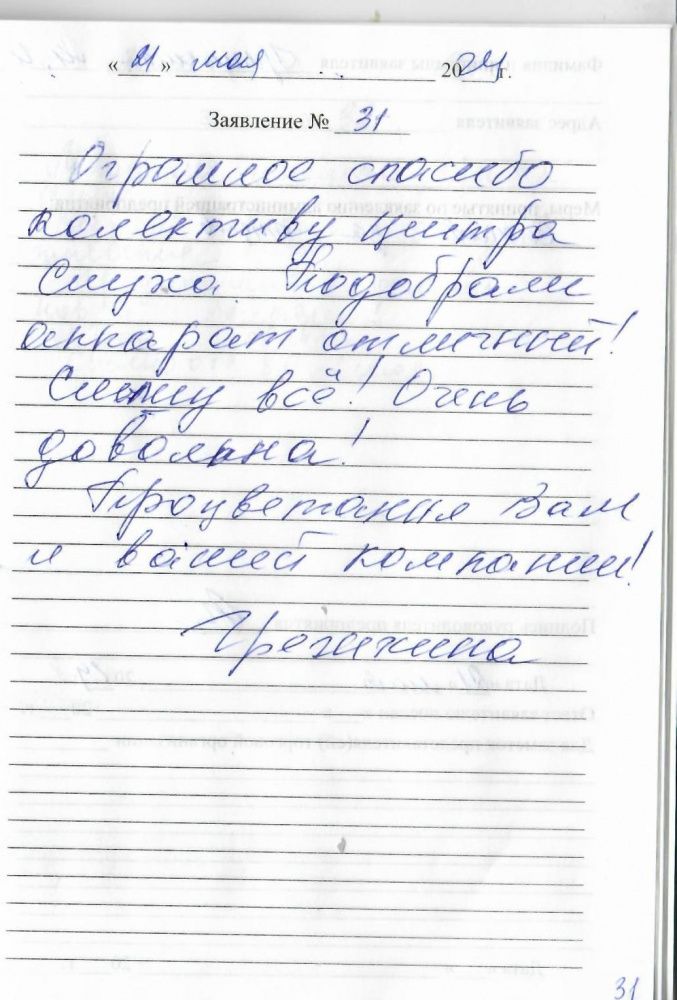 «21» мая 2024г.
Заявление № 31
Огромное спасибо
колективу центра
Слуха. Подобрали
аппарат отличный!
Слышу всё! Очень
довольна!
Процветания Вам
и вашей компании!
31